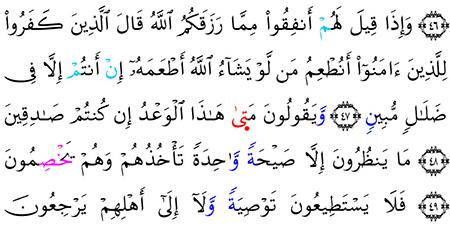 ﴿٤٦﴾ وَإِذَا قِيلَ لَهُمْ أَنفِقُواْ مِمَّا رَزَقَكُمُ اللَّهُ قَالَ الَّذِينَ كَفَرُواْ
لِلَّذِينَ ءَامَنُوٓاْ أَنُطْعِمُ مَن لَّوْ يَشَآءُ اللَّهُ أَطْعَمَهُۥٓ إِنْ أَنتُمْ إِلَّا فِى
ضَلَٰلٍ مُّبِينٍ ﴿٤٧﴾ وَّيَقُولُونَ مَتَىٰ هَٰذَا الْوَعْدُ إِن كُنتُمْ صَٰدِقِينَ
﴿٤٨﴾ مَا يَنظُرُونَ إِلَّا صَيْحَةً وَّٰحِدَةً تَأْخُذُهُمْ وَهُمْ يَخَصِّمُونَ
﴿٤٩﴾ فَلَا يَسْتَطِيعُونَ تَوْصِيَةً وَّلَآ إِلَىٰٓ أَهْلِهِمْ يَرْجِعُونَ